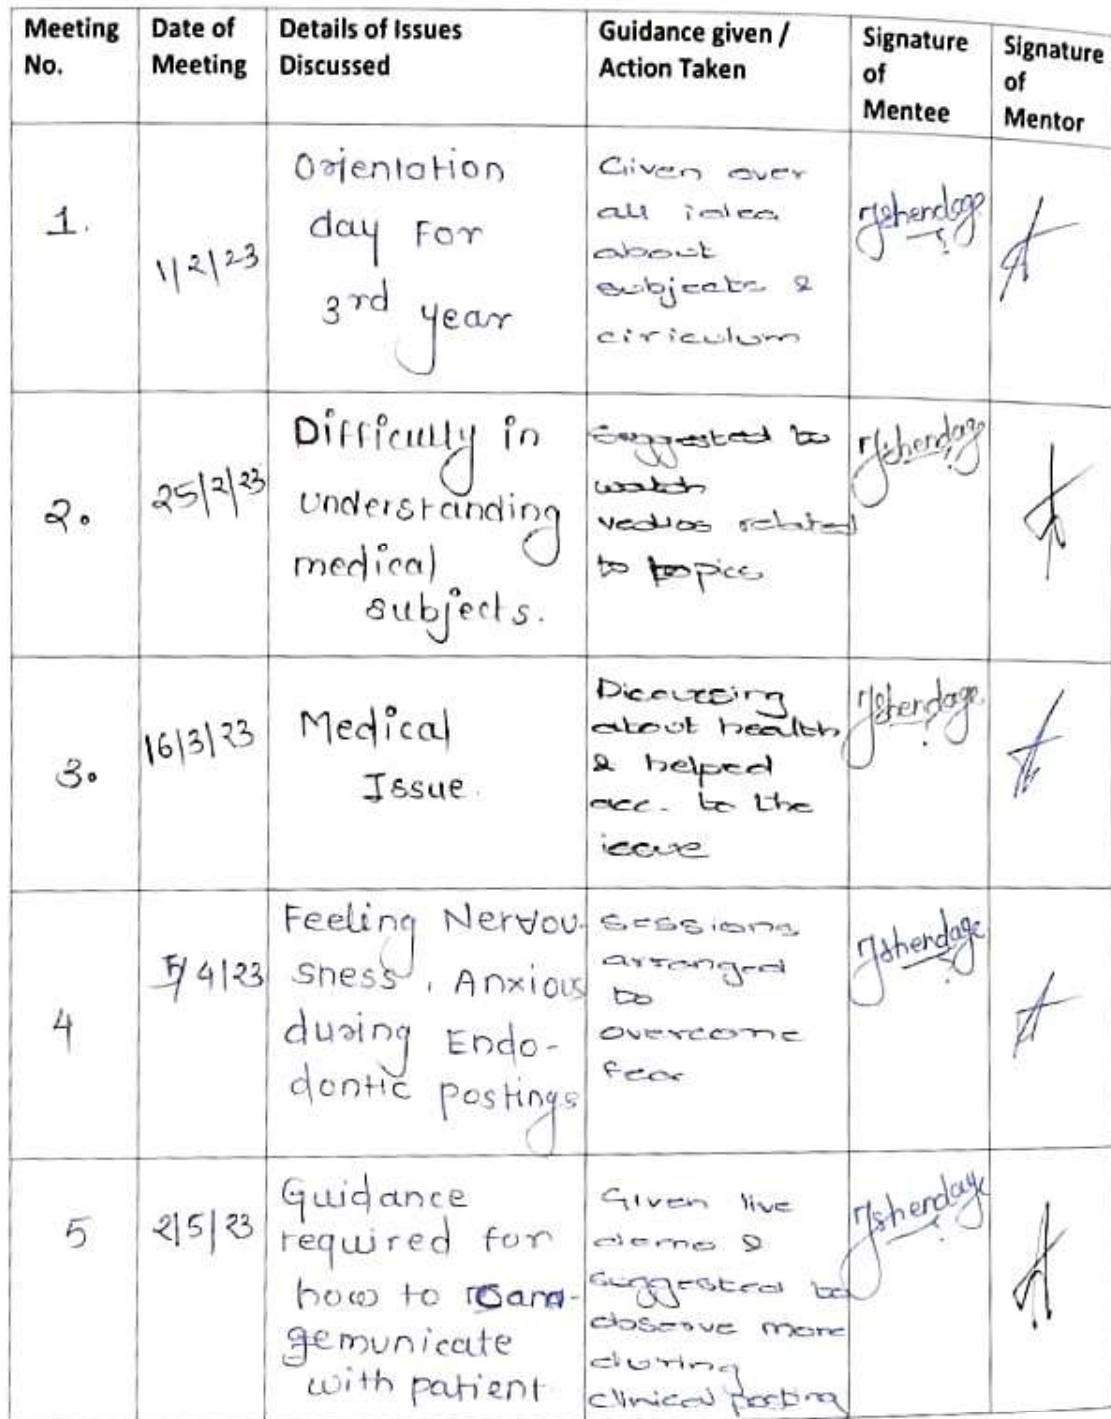 Meeting No. Date of Meeting Details of Issues Discussed Guidance given / Action Taken Signature of Mentee Signature of Mentor
1.
1/2/23
Orientation
day For
3rd year
Given over
all idea
about
subjects &
ciriculum
Jshendage
2.
25/2/23
Difficulty in
understanding
medical
subjects.
Suggested to
watch
vedios related
to topics
Jshendage
3.
16/3/23
Medical
Issue.
Discussing
about health
& helped
acc. to the
issue
Jshendage
4
4/23
Feeling Nervou-
sness, Anxious
during Endo-
dontic postings
sessions
arranged
to
overcome
fear
Jshendage
5
2/5/23
Guidance
required for
how to
municate
with patient
Given live
demo &
suggested to
observe more
during
clinical posting
Jshendage